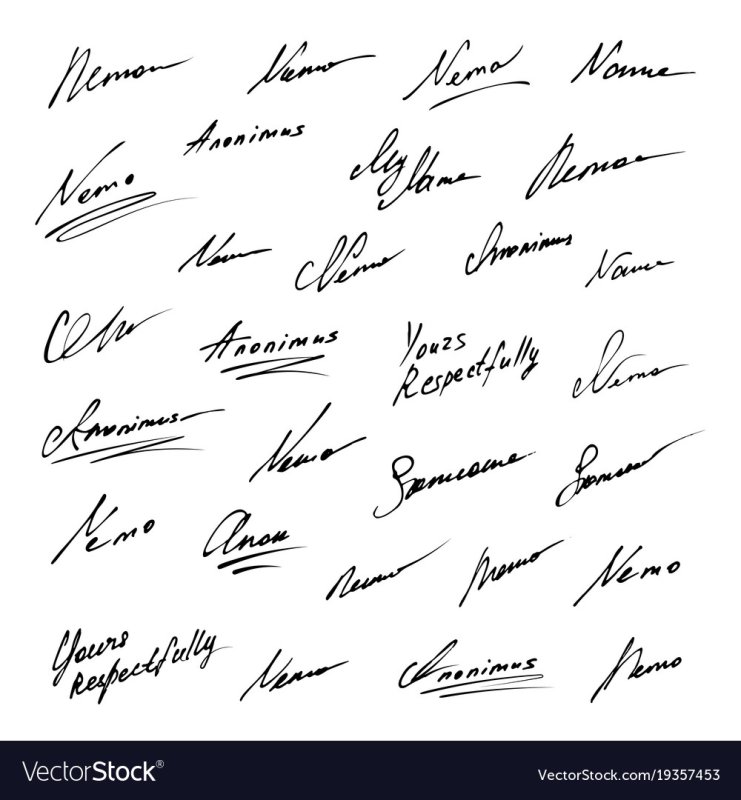 Nemo Nemo Nemo Name
Anonimus
Nemo My Name Nemo
Nemo Nemo Anonimus Name
Anonimus Yours
Respectfully Nemo
Anonimus Nemo Someone Someone
Nemo Anon Nemo Nemo Nemo
Yours
Respectfully Nemo Anonimus Nemo
VectorStock®
VectorStock.com/19357453